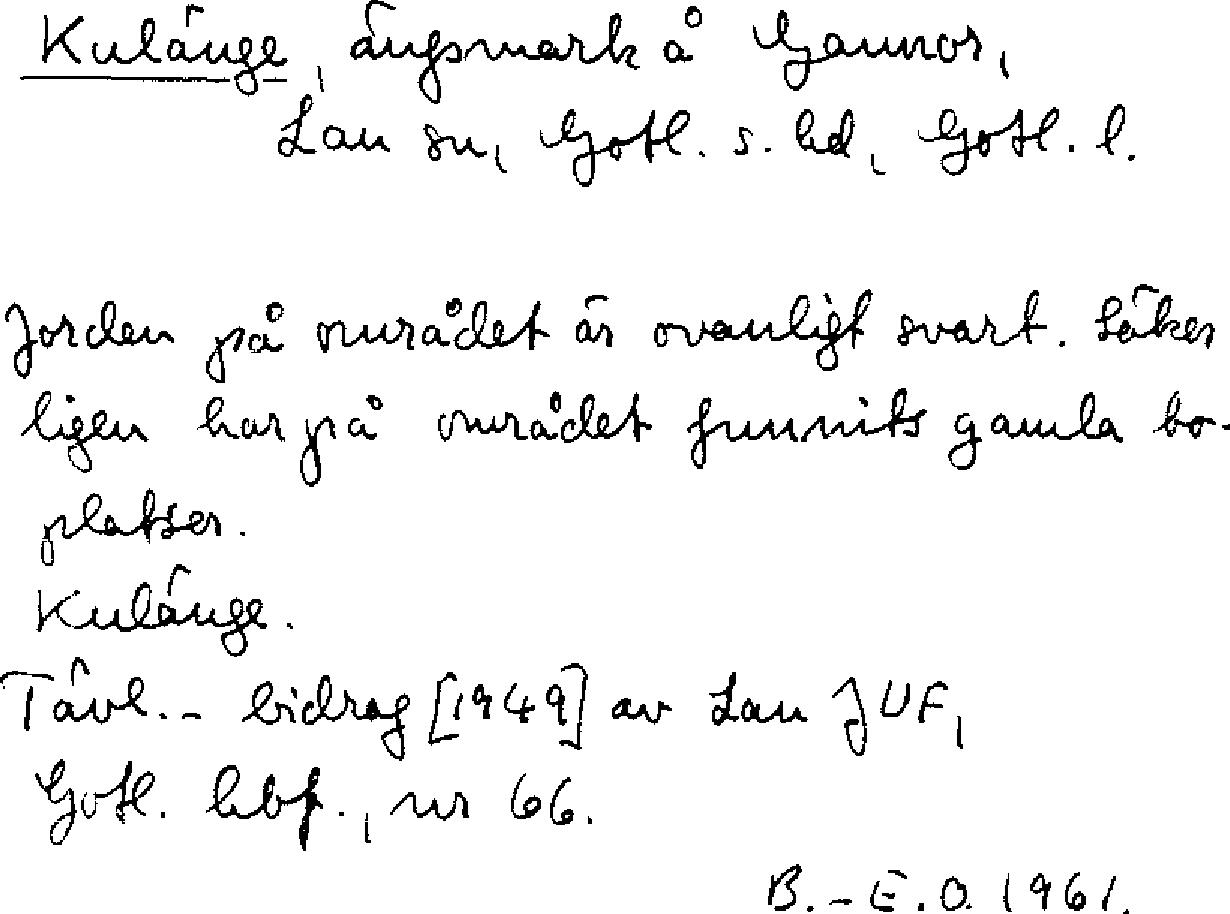 Kulänge, ängsmark å Gannor,
Lau sn, Gotl. s. hd, Gotl. l.
Jorden på området är ovanligt svart. Säker
ligen har på området funnits gamla bo-
platser.
Kulänge.
Tävl.- bidrag [1949] av Lau JUF,
Gotl. hbf., nr 66.
B.-E.O. 1961.